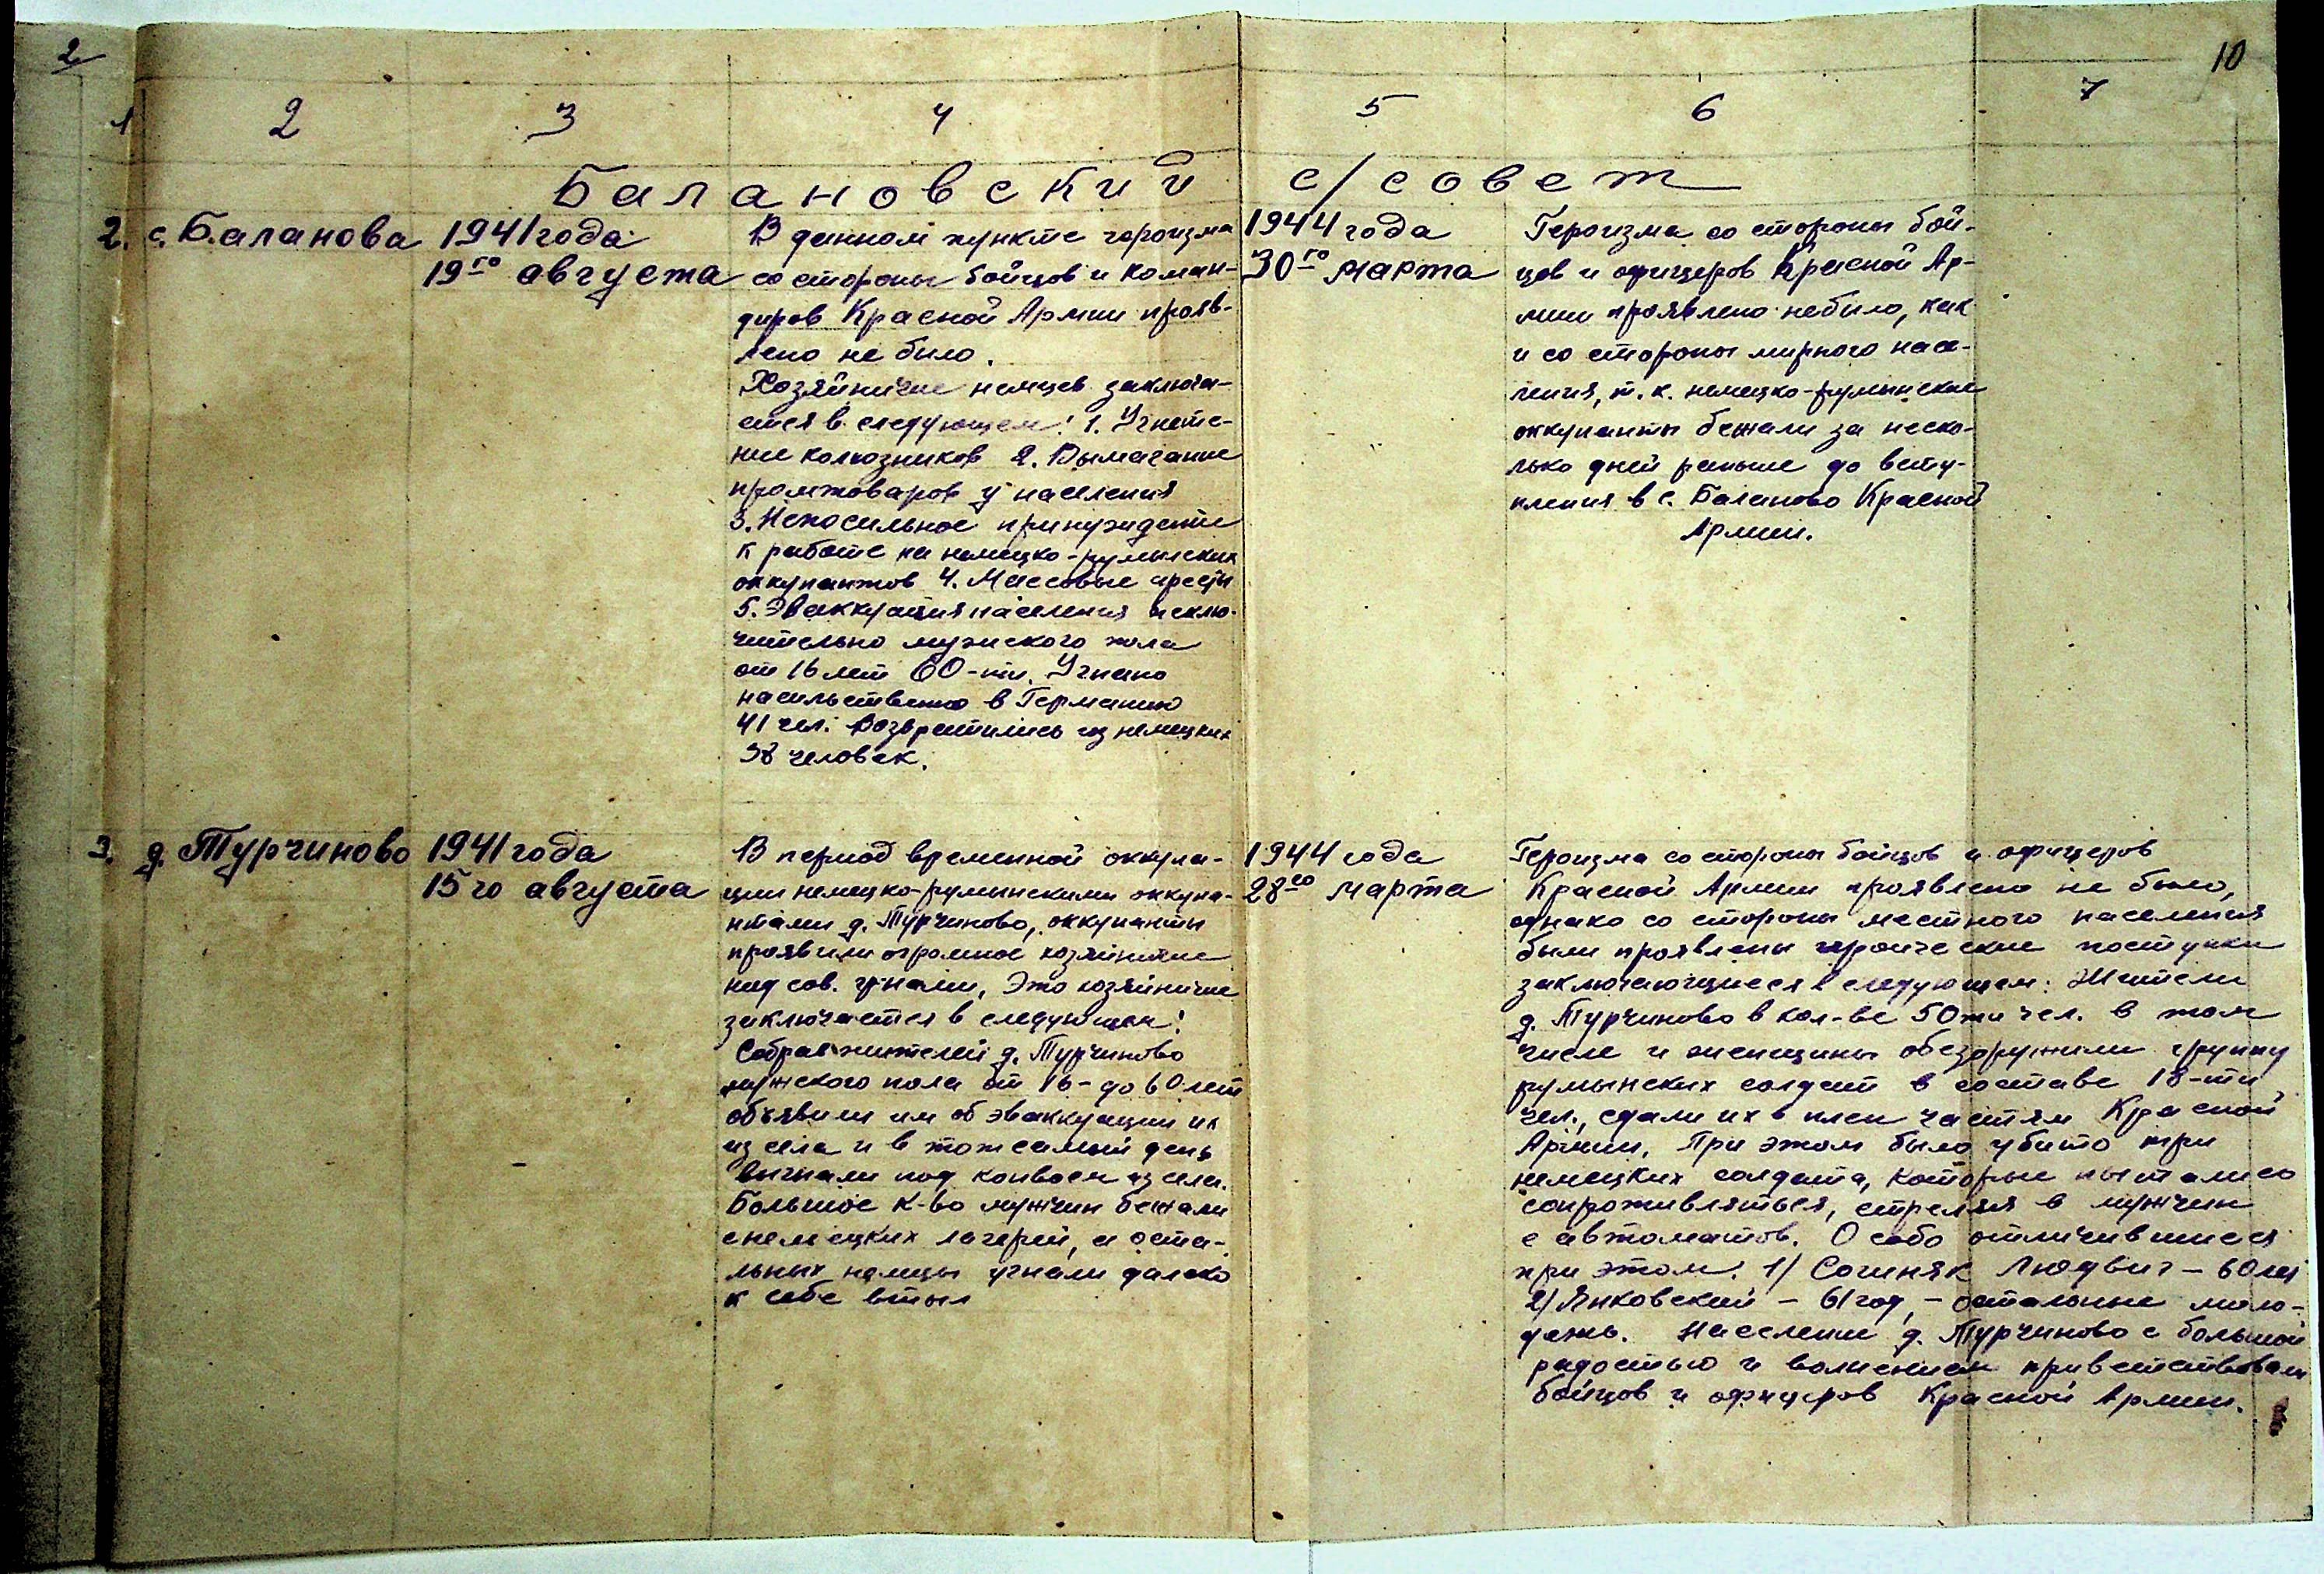 2
10
1 2 3 4 5 6 7
Балановский с/совет
2. с. Баланова
1941 года
19го августа
В данном пункте героизма
со стороны бойцов и коман-
диров Красной Армии прояв-
лено не било.
Хозяйничие немцев заключа-
ется в следующем: 1. Угнете-
ние колхозников 2. Вымагание
промтоваров у населения
3. Непосильное принуждение
к работе на немецко-румынских
оккупантов 4. Массовые аресты
5. Эваккуация населения исклю-
чительно мужского пола
от 16 лет 60-ти. Угнано
насильственно в Германию
41 чел. Возвратились из немецких
38 человек.
1944 года
30го марта
Героизма со стороны бой-
цов и офицеров Красной Ар-
мии проявлено небило, как
и со стороны мирного насе-
ления, т. к. немецко-румынские
оккупанты бежали за неско-
лько дней раньше до всту-
пления в с. Баланово Красной
Армии.
3. д. Турчиново
1941 года
15го августа
В период временной оккупа-
ции немецко-румынскими оккупа-
нтами д. Турчиново, оккупанты
проявили огромное хозяйничие
над сов. гр-нами, Это хозяйничие
заключается в следующем:
Собрав жителей д. Турчиново
мужского пола от 16- до 60 лет
объявили им об эваккуации их
из села и в тот же самый день
выгнали под конвоем из села.
Большое к-во мужчин бежали
с немецких лагерей, а оста-
льных немцы угнали далеко
к себе в тыл
1944 года
28го марта
Героизма со стороны бойцов и офицеров
Красной Армии проявлено не было,
однако со стороны местного населения
были проявлены героические поступки
заключающиеся в следующем: Жители
д. Турчиново в кол-ве 50ти чел. в том
числе и женщины обезоружили группу
румынских солдат в составе 18-ти
чел., сдали их в плен частям Красной
Армии. При этом было убито три
немецких солдата, которые пытались
сопротивляться, стреляя в мужчин
с автоматов. Особо отличившиеся
при этом: 1/ Сочиняк Людвиг - 60 лет
2/ Янковский - 61 год, - остальные моло-
дежь. Население д. Турчиново с большой
радостью и волнением приветствовали
бойцов и офицеров Красной Армии.